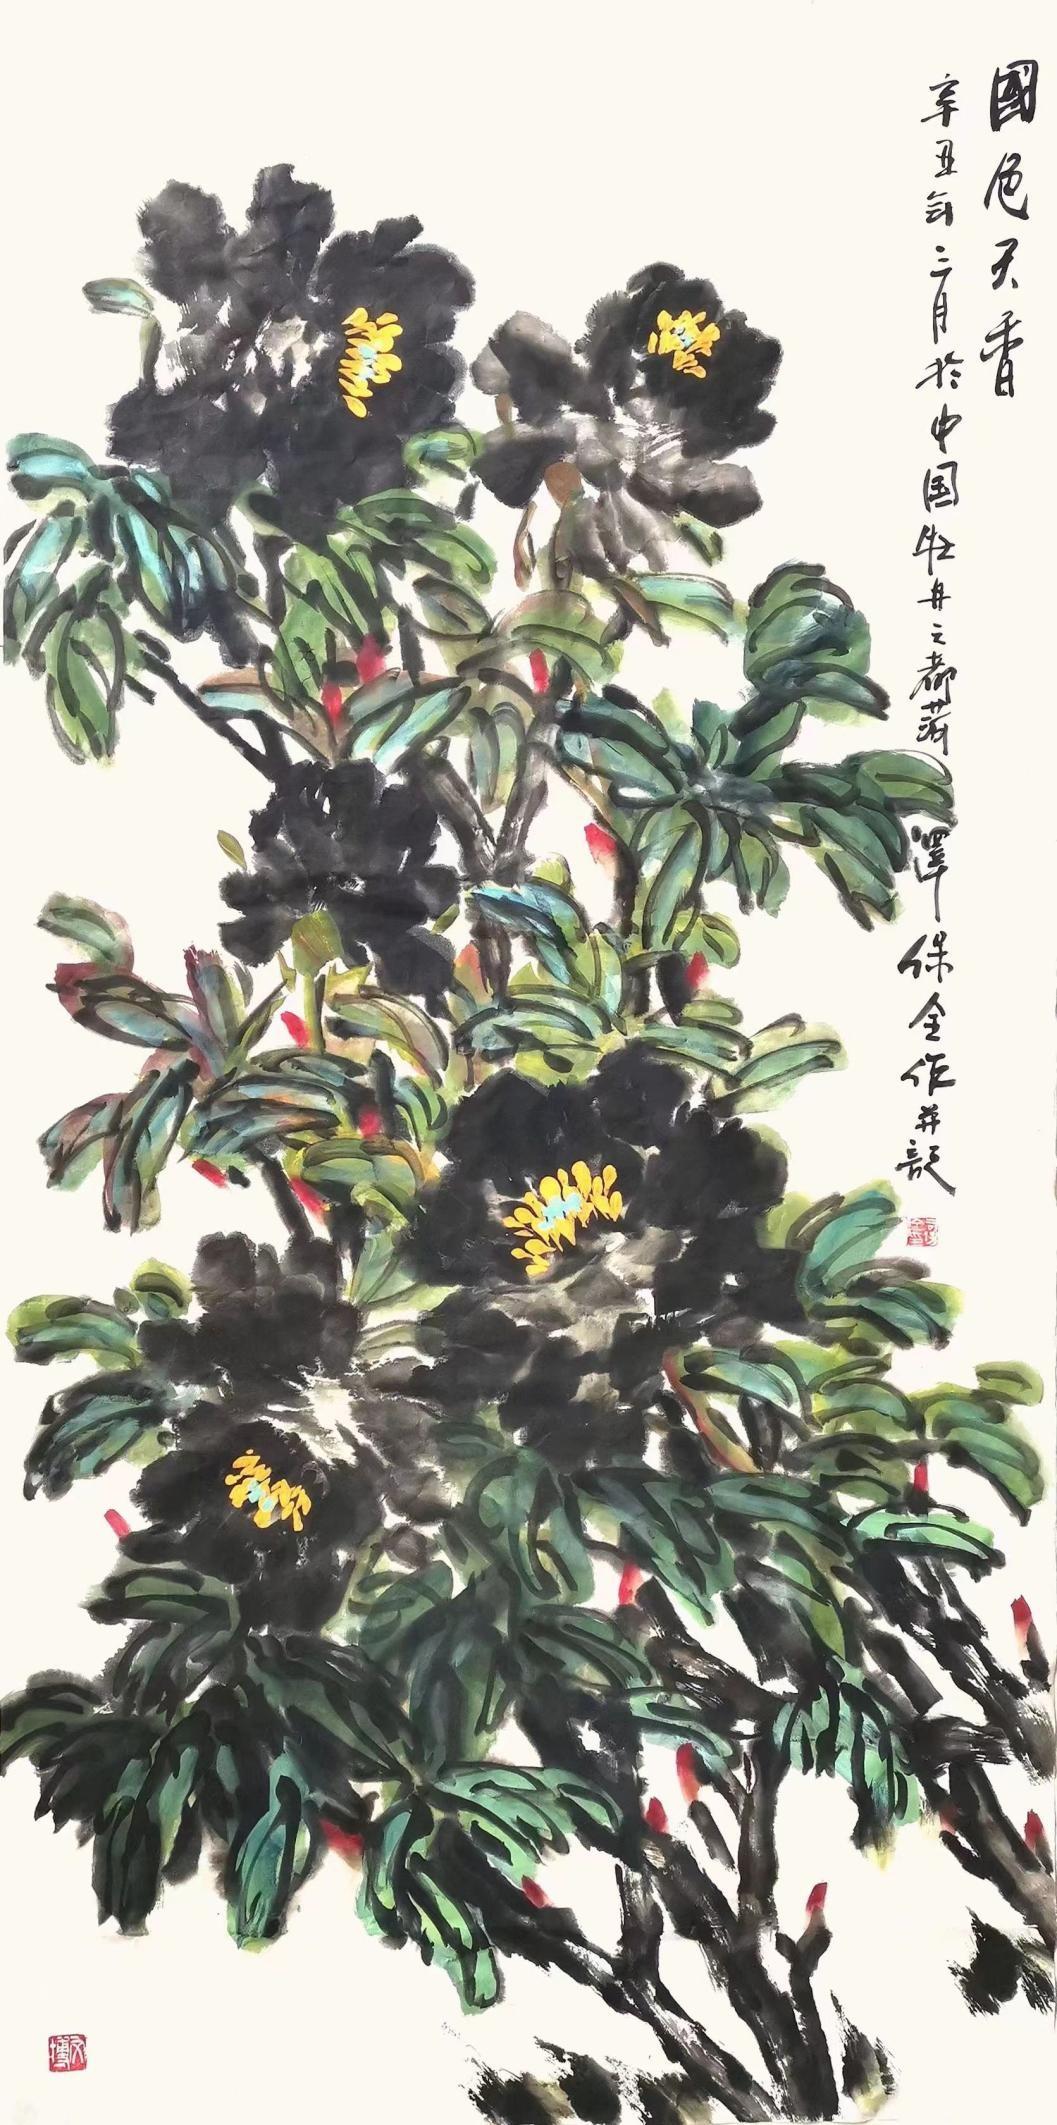 國色天香
辛丑年三月於中国牡丹之都菏澤保全作并記